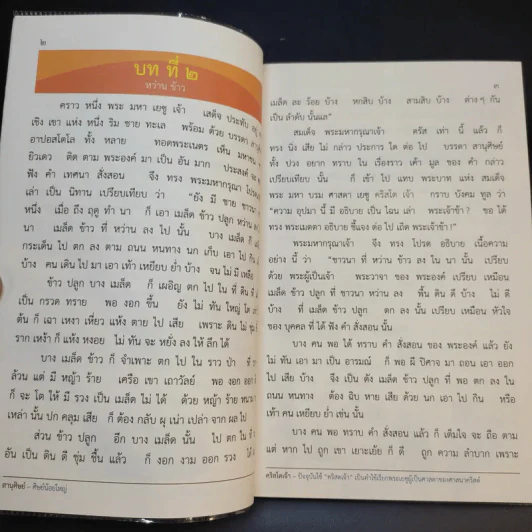 ๒
บท ที่ ๒
หว่าน ข้าว
คราว หนึ่ง พระ มหา เยซู เจ้า เสด็จ ประทับ อยู่
เชิง เขา แห่ง หนึ่ง ริม ชาย ทะเล พร้อม ด้วย บรรดา
อาปอสโตโล ทั้ง หลาย ทอดพระเนตร เห็น มหาชน
ยิวเดว ติด ตาม พระองค์ มา เป็น อัน มาก ประสงค์
ฟัง คำ เทศนา สั่งสอน จึง ทรง พระมหากรุณา โปรด
เล่า เป็น นิทาน เปรียบเทียบ ว่า "ยัง มี ชาย ชาวนา
หนึ่ง เมื่อ ถึง ฤดู ทำ นา ก็ เอา เมล็ด ข้าว ปลูก หว่าน
นา เมล็ด ข้าว ที่ หว่าน ลง ไป นั้น บาง เมล็ด ก็
กระเด็น ไป ตก ลง ตาม ถนน หนทาง นก เก็บ เอา ไป กิน
บ้าง คน เดิน ไป มา เอา เท้า เหยียบ ย่ำ บ้าง จน ไม่ มี เหลือ
ข้าว ปลูก บาง เมล็ด ก็ เผอิญ ตก ไป ใน ที่ ดิน
เป็น กรวด ทราย พอ งอก ขึ้น ยัง ไม่ ทัน ใหญ่ โต
ต้น ก็ เฉา เหงา เหี่ยว แห้ง ตาย ไป เสีย เพราะ ดิน ไม่
ราก เหง้า ก็ แห้ง หงอย ไม่ ทัน จะ หยั่ง ลง ให้ ลึก ได้
บาง เมล็ด ข้าว ก็ จำเพาะ ตก ไป ใน ราว ป่า
ล้วน แต่ มี หญ้า ร้าย เครือ เขา เถาวัลย์ พอ งอก ออก
ก็ จะ โต ให้ มี รวง เป็น เมล็ด ไม่ ได้ ด้วย หญ้า ร้าย หนาม
เหล่า นั้น ปก คลุม เสีย ก็ ต้อง กลับ ผุ เน่า เปล่า จาก ผล ไป
ส่วน ข้าว ปลูก อีก บาง เมล็ด นั้น ไป ตก ใน ที่
อัน เป็น ดิน ดี ชุ่ม ชื้น แล้ว ก็ งอก งาม ออก รวง ได้
สานุศิษย์ – ศิษย์น้อยใหญ่
๓
เมล็ด ละ ร้อย บ้าง หกสิบ บ้าง สามสิบ บ้าง ต่าง ๆ กัน
เป็น ลำดับ นั้นแล"
สมเด็จ พระมหากรุณาเจ้า ตรัส เท่า นี้ แล้ว ก็
ทรง นิ่ง เสีย ไม่ กล่าว ประการ ใด ต่อ ไป บรรดา สานุศิษย์
ทั้ง ปวง อยาก ทราบ ใน เรื่องราว เค้า มูล ของ คำ กล่าว
เปรียบเทียบ นั้น ก็ เข้า ไป แทบ พระบาท แห่ง สมเด็จ
พระ มหา บรม ศาสดา เยซู คริสโต เจ้า กราบ บังคม ทูล ว่า
"ความ อุปมา นี้ มี อธิบาย เป็น ไฉน เล่า พระเจ้าข้า ? ขอ ได้
ทรง พระเมตตา อธิบาย ชี้แจง ต่อ ไป เถิด พระเจ้าข้า !"
พระมหากรุณาเจ้า จึง ทรง โปรด อธิบาย เนื้อความ
อย่าง นี้ ว่า "ชาวนา ที่ หว่าน ข้าว ลง ใน นา นั้น เปรียบ
ด้วย พระผู้เป็นเจ้า พระวาจา ของ พระองค์ เปรียบ เหมือน
เมล็ด ข้าว ปลูก ที่ ชาวนา หว่าน ลง พื้น ดิน ดี บ้าง ไม่ ดี
บ้าง ที่ เมล็ด ข้าว ปลูก ตก ลง นั้น เปรียบ เหมือน หัวใจ
ของ บุคคล ที่ ได้ ฟัง คำ สั่งสอน นั้น
บาง คน พอ ได้ ทราบ คำ สั่งสอน ของ พระองค์ แล้ว ยัง
ไม่ ทัน เอา มา เป็น อารมณ์ ก็ พอ ผี ปีศาจ มา ถอน เอา ออก
ไป เสีย บ้าง จึง เป็น ดัง เมล็ด ข้าว ปลูก ที่ พอ ตก ลง ใน
ถนน หนทาง ต้อง ฉิบ หาย เสีย ด้วย นก เอา ไป กิน หรือ
เท้า คน เหยียบ ย่ำ เช่น นั้น
บาง คน พอ ทราบ คำ สั่งสอน แล้ว ก็ เต็มใจ จะ ถือ ตาม
แต่ หาก ไป ถูก เขา เยาะเย้ย ก็ ดี ถูก ความ ลำบาก เพราะ
คริสโตเจ้า – ปัจจุบันใช้ "คริสตเจ้า" เป็นคำใช้เรียกพระเยซูผู้เป็นศาสดาของศาสนาคริสต์